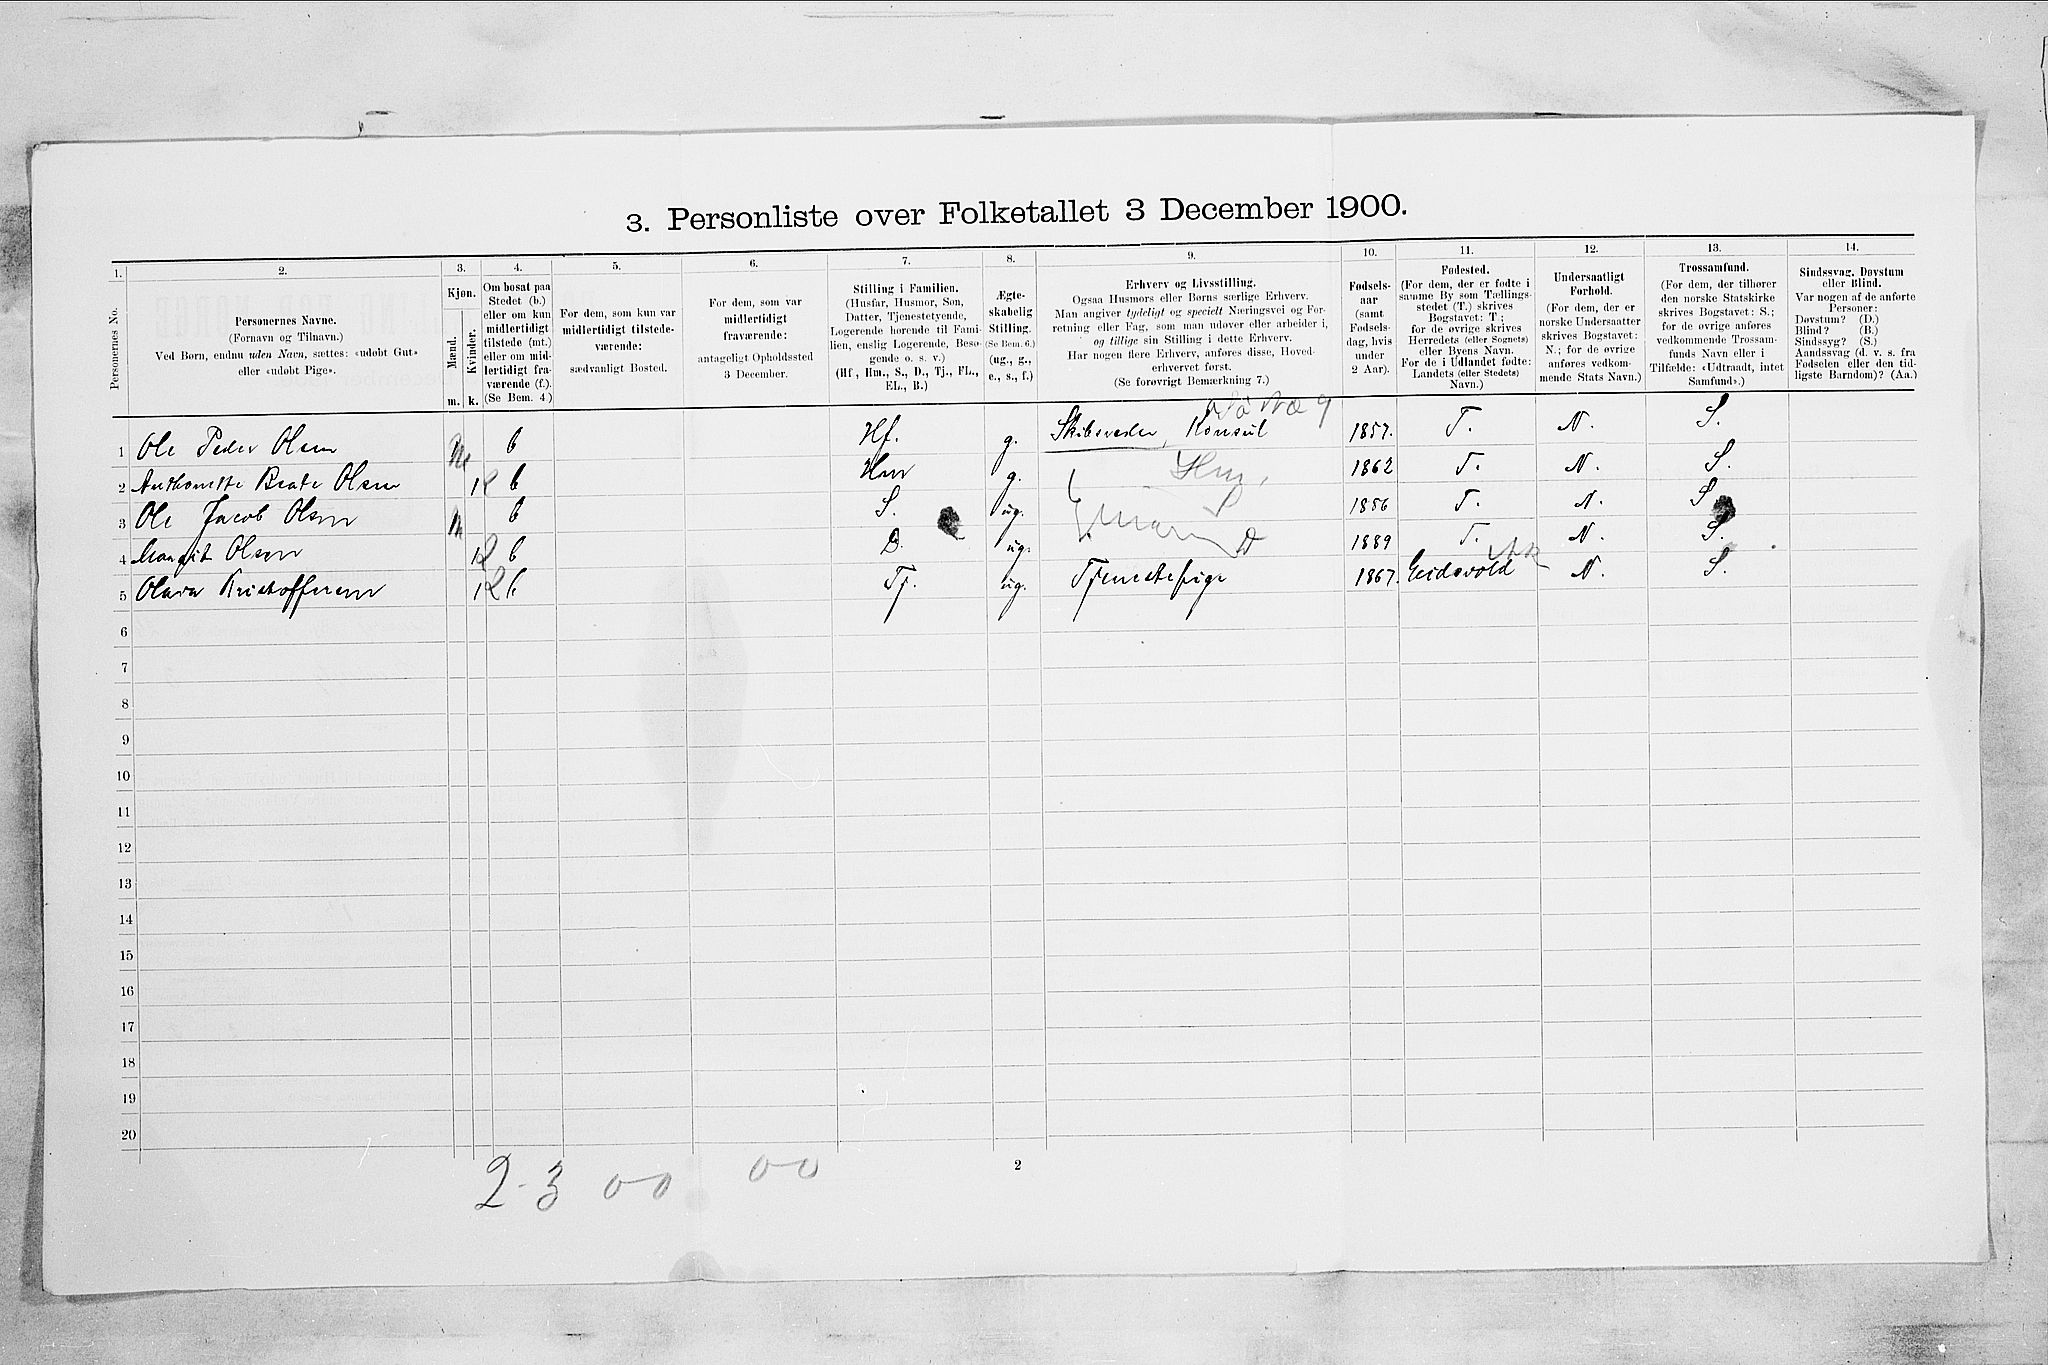 3. Personliste over Folketallet 3 December 1900.
1. 2. 3. 4. 5. 6. 7. 8. 9. 10. 11. 12. 13. 14.
Personernes No.
Personernes Navne.
(Fornavn og Tilnavn.)
Ved Børn, endnu uden Navn, sættes: «udøbt Gut»
eller «udøbt Pige».
Kjøn.
Mænd.
Kvinder.
m. k.
Om bosat paa
Stedet (b.)
eller om kun
midlertidigt
tilstede (mt.)
eller om mid-
lertidigt fra-
værende (f.).
(Se Bem. 4.)
For dem, som kun var
midlertidigt tilstede-
værende:
sædvanligt Bosted.
For dem, som var
midlertidigt
fraværende:
antageligt Opholdssted
3 December.
Stilling i Familien.
(Husfar, Husmor, Søn,
Datter, Tjenestetyende,
Logerende hørende til Fami-
lien, enslig Logerende, Besø-
gende o. s. v.)
(Hf., Hm., S., D., Tj., FL.,
EL., B.)
Ægte-
skabelig
Stilling.
(Se Bem. 6.)
(ug., g.,
e., s., f.)
Erhverv og Livsstilling.
Ogsaa Husmors eller Børns særlige Erhverv.
Man angiver tydeligt og specielt Næringsvei og For-
retning eller Fag, som man udøver eller arbeider i,
og tillige sin Stilling i dette Erhverv.
Har nogen flere Erhverv, anføres disse, Hoved-
erhvervet først.
(Se forøvrigt Bemærkning 7.)
Fødsels-
aar
(samt
Fødsels-
dag, hvis
under
2 Aar).
Fødested.
(For dem, der er fødte i
samme By som Tællings-
stedet (T.) skrives
Bogstavet: T.;
for de øvrige skrives
Herredets (eller Sognets)
eller Byens Navn.
For de i Udlandet fødte:
Landets (eller Stedets)
Navn.)
Undersaatligt
Forhold.
(For dem, der er
norske Undersaatter
skrives Bogstavet:
N.; for de øvrige
anføres vedkom-
mende Stats Navn.)
Trossamfund.
(For dem, der tilhører
den norske Statskirke
skrives Bogstavet: S.;
for de øvrige anføres
vedkommende Trossam-
funds Navn eller i
Tilfælde: «Udtraadt, intet
Samfund».)
Sindssvag, Døvstum
eller Blind.
Var nogen af de anførte
Personer:
Døvstum? (D.)
Blind? (B.)
Sindssyg? (S.)
Aandssvag (d. v. s. fra
Fødselen eller den tid-
ligste Barndom)? (Aa.)
1 Ole Peder Olsen m b Hf. g. Skibsreder, Konsul 1857. T. N. S.
2 Anthonette Beate Olsen k b Hm g. Hm, 1862 T. N. S.
3 Ole Jacob Olsen m b S. ug. S 1856 T. N. S.
4 Margit Olsen k b D. ug. D 1889 T. N. S.
5 Olava Kristoffersen k b. Tj. ug. Tjenestepige 1867. Eidsvold N. S.
6
7
8
9
10
11
12
13
14
15
16
17
18
19
20
2-3 00 00
2